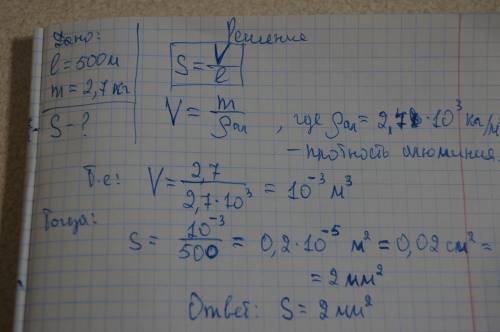 Дано:
l = 500 м
m = 2,7 кг
S - ?
Решение
S = V/l
V = m/ρал , где ρал = 2,7 · 10³ кг/м
– плотность алюминия.
Т.е: V = 2,7/(2,7·10³) = 10⁻³ м³
Тогда:
S = 10⁻³/500 = 0,2·10⁻⁵ м² = 0,02 см² =
= 2 мм²
Ответ: S = 2 мм²